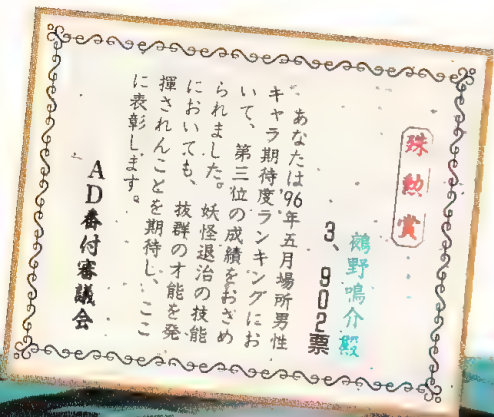 殊勲賞
鵺野鳴介殿
3、902票
あなたは'96年五月場所男性
キャラ期待度ランキングにお
いて、第三位の成績をおさめ
られました。妖怪退治の技能
においても、抜群のオ能を発
揮されんことを期待し、ここ
に表彰します。
AD番付審議会